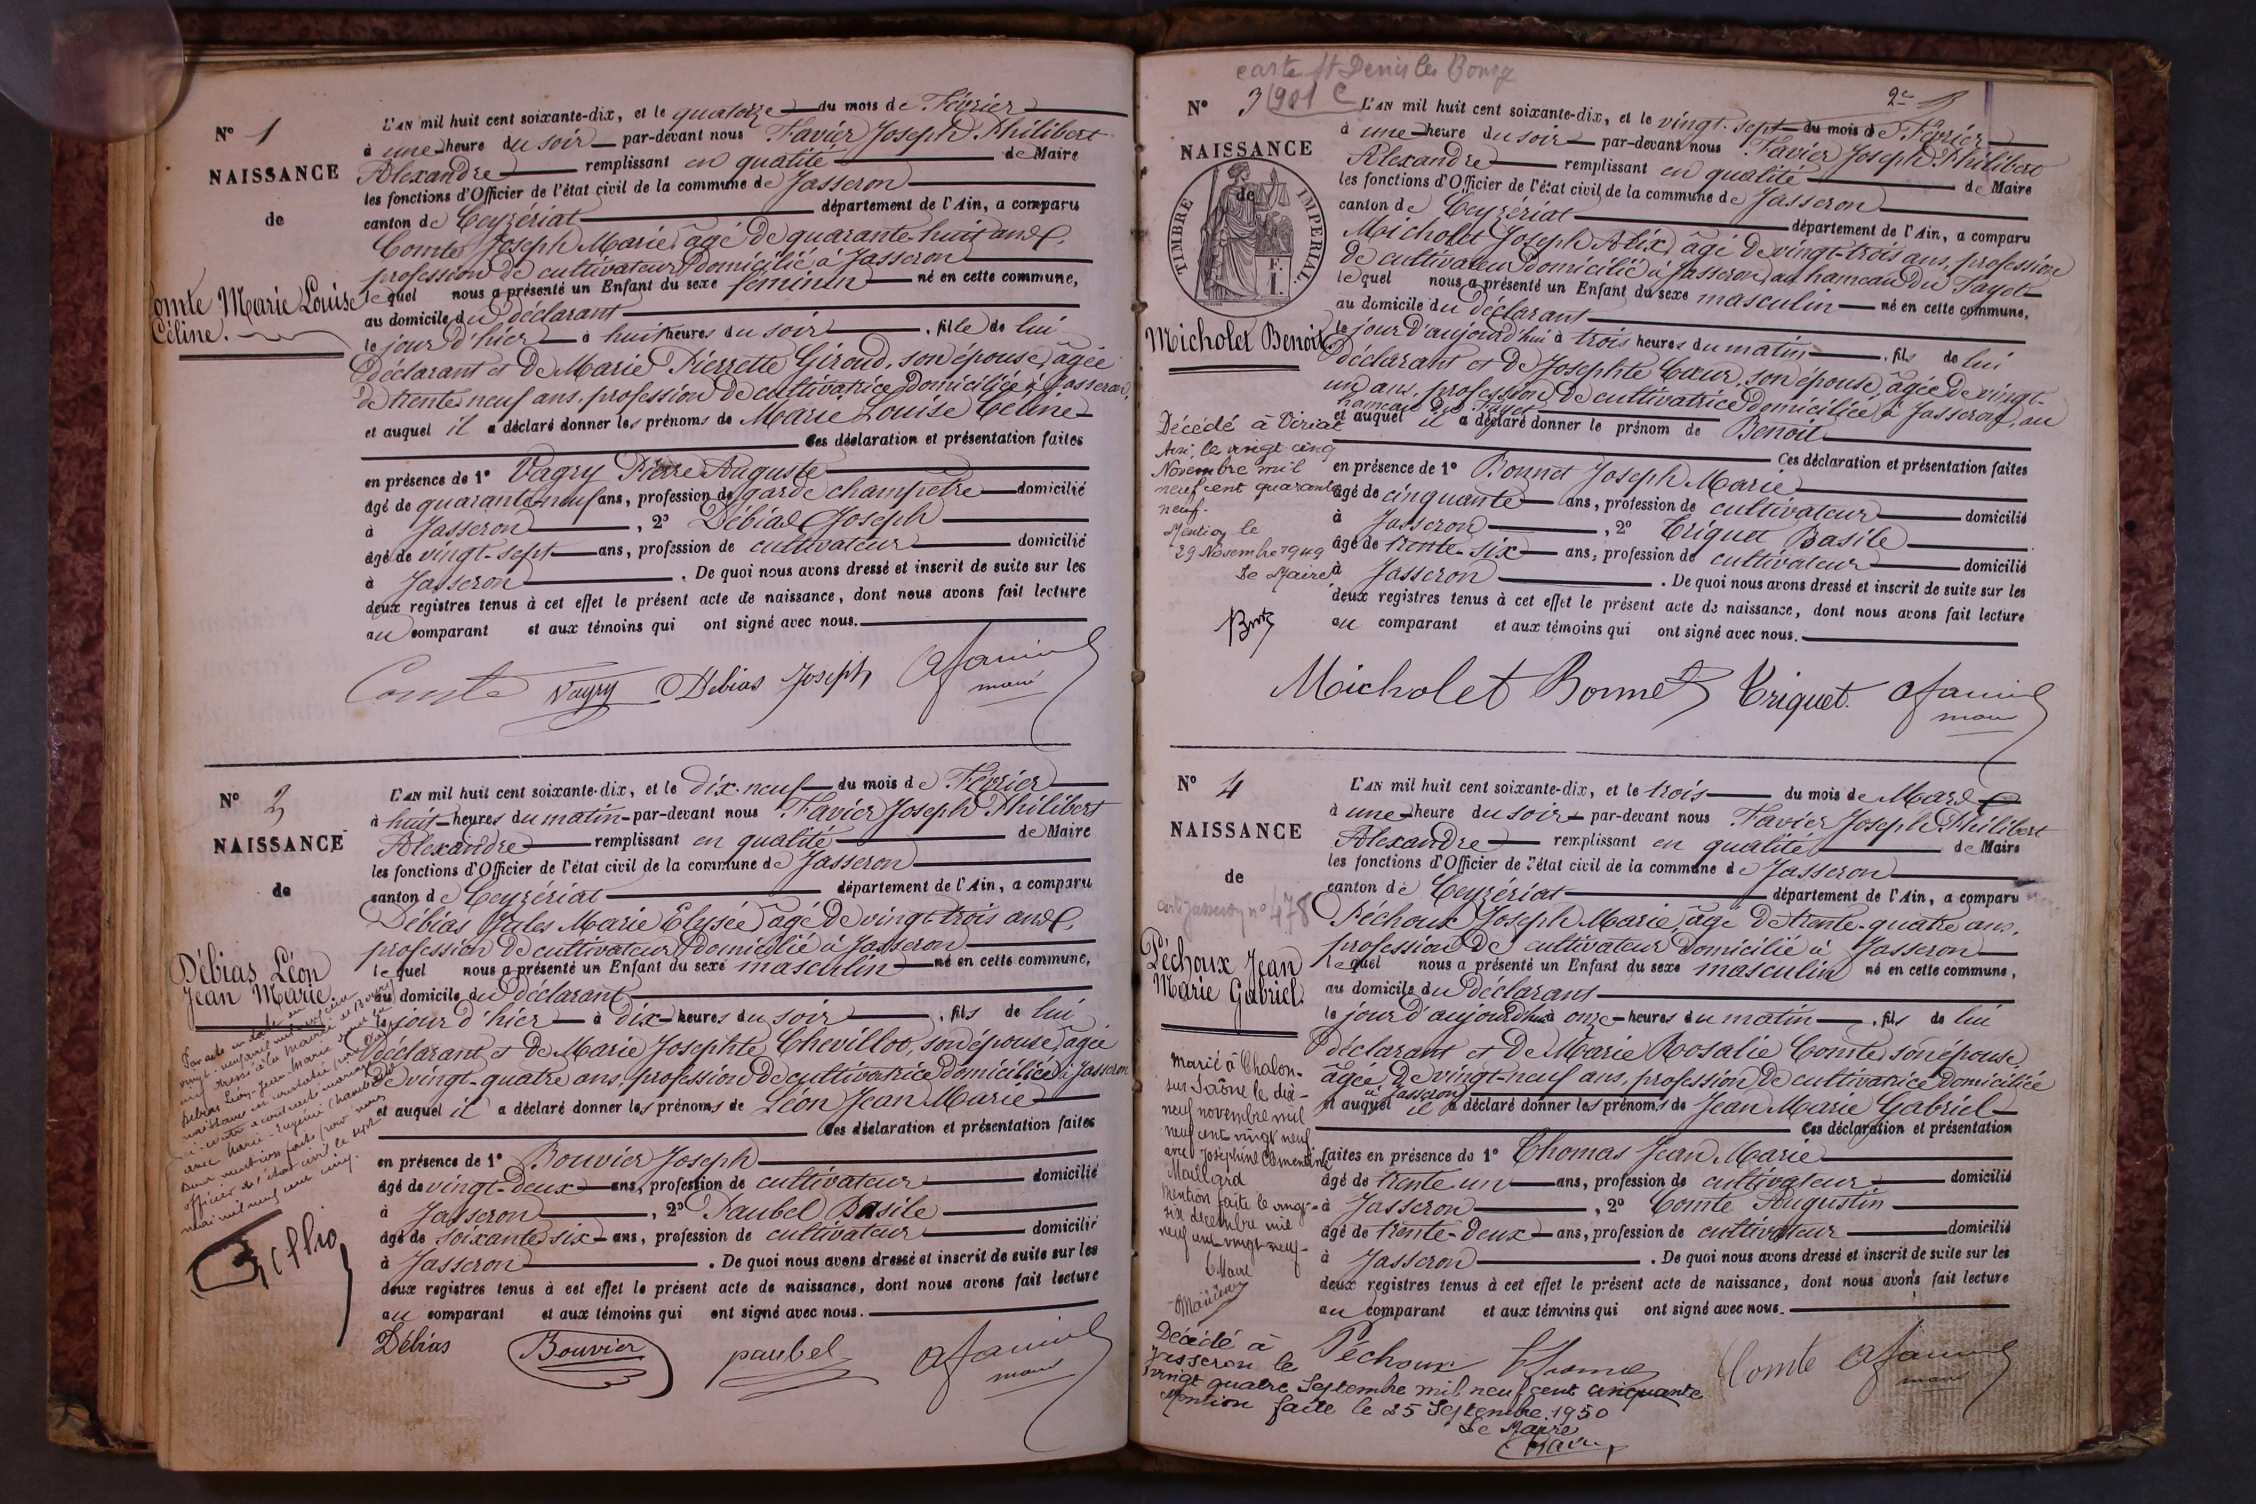 N° 1
NAISSANCE
de
Comte Marie Louise
Céline.
L'AN mil huit cent soixante-dix, et le quatorze du mois de Février
à une heure du soir par-devant nous Favier Joseph Philibert
Alexandre remplissant en qualité de Maire
les fonctions d'Officier de l'état civil de la commune de Jasseron
canton de Ceyzériat département de l'Ain, a comparu
Comte Joseph Marie, âgé de quarante-huit ans,
profession de cultivateur, domicilié à Jasseron
lequel nous a présenté un Enfant du sexe féminin né en cette commune,
au domicile du déclarant
le jour d'hier à huit heures du soir, fille de lui
déclarant et de Marie Pierrette Giroud, son épouse, âgée
de trente-neuf ans, profession de cultivatrice, domiciliée à Jasseron,
et auquel il a déclaré donner les prénoms de Marie Louise Céline
Ces déclaration et présentation faites
en présence de 1° Vagry Pierre Auguste
âgé de quarante-neuf ans, profession de garde champêtre domicilié
à Jasseron, 2° Débias Joseph
âgé de vingt-sept ans, profession de cultivateur domicilié
à Jasseron. De quoi nous avons dressé et inscrit de suite sur les
deux registres tenus à cet effet le présent acte de naissance, dont nous avons fait lecture
au comparant et aux témoins qui ont signé avec nous.
Comte Vagry Débias Joseph
N° 2
NAISSANCE
de
Débias Léon
Jean Marie
Par acte en date du
vingt-neuf avril mil neuf cent
Débias Léon-Jean-Marie
avec Marie-Eugénie
officier de l'état civil, le sept
mai mil neuf cent cinq.
L'AN mil huit cent soixante-dix, et le dix-neuf du mois de Février
à huit heures du matin par-devant nous Favier Joseph Philibert
Alexandre remplissant en qualité de Maire
les fonctions d'Officier de l'état civil de la commune de Jasseron
canton de Ceyzériat département de l'Ain, a comparu
Débias Jules Marie Elysée, âgé de vingt-trois ans,
profession de cultivateur, domicilié à Jasseron
lequel nous a présenté un Enfant du sexe masculin né en cette commune,
au domicile du déclarant
le jour d'hier à dix heures du soir, fils de lui
déclarant et de Marie Josephte Chevillot, son épouse, âgée
de vingt-quatre ans, profession de cultivatrice, domiciliée à Jasseron
et auquel il a déclaré donner les prénoms de Léon Jean Marie
Ces déclaration et présentation faites
en présence de 1° Bouvier Joseph
âgé de vingt-deux ans, profession de cultivateur domicilié
à Jasseron, 2° Paubel Basile
âgé de soixante-six ans, profession de cultivateur domicilié
à Jasseron. De quoi nous avons dressé et inscrit de suite sur les
deux registres tenus à cet effet le présent acte de naissance, dont nous avons fait lecture
au comparant et aux témoins qui ont signé avec nous.
Débias Bouvier paubel
carte St Denis les Bourg
901 C
N° 3
NAISSANCE
de
TIMBRE IMPERIAL
Micholet Benoit
Décédé à Viriat
Ain, le vingt cinq
Novembre mil
neuf cent quarante
neuf.
Mention le
29 Novembre 1949
Le Maire
L'AN mil huit cent soixante-dix, et le vingt-sept du mois de Février
à une heure du soir par-devant nous Favier Joseph Philibert
Alexandre remplissant en qualité de Maire
les fonctions d'Officier de l'état civil de la commune de Jasseron
canton de Ceyzériat département de l'Ain, a comparu
Micholet Joseph Alix, âgé de vingt-trois ans, profession
de cultivateur, domicilié à Jasseron, au hameau du Tayet
lequel nous a présenté un Enfant du sexe masculin né en cette commune,
au domicile du déclarant
le jour d'aujourd'hui à trois heures du matin, fils de lui
déclarant et de Josephte Cœur, son épouse, âgée de vingt-
un ans, profession de cultivatrice, domiciliée à Jasseron, au
hameau du Tayet
et auquel il a déclaré donner le prénom de Benoit
Ces déclaration et présentation faites
en présence de 1° Bonnet Joseph Marie
âgé de cinquante ans, profession de cultivateur domicilié
à Jasseron, 2° Triquet Basile
âgé de trente-six ans, profession de cultivateur domicilié
à Jasseron. De quoi nous avons dressé et inscrit de suite sur les
deux registres tenus à cet effet le présent acte de naissance, dont nous avons fait lecture
au comparant et aux témoins qui ont signé avec nous.
Micholet Bonnet Triquet
N° 4
NAISSANCE
de
carte Jasseron n° 478
Péchoux Jean
Marie Gabriel
Marié à Chalon-
sur-Saône le dix-
neuf novembre mil
neuf cent vingt neuf
avec Joséphine Clémentine
Maillard
Mention faite le vingt-
six décembre mil
neuf cent vingt-neuf-
L'AN mil huit cent soixante-dix, et le trois du mois de Mars
à une heure du soir par-devant nous Favier Joseph Philibert
Alexandre remplissant en qualité de Maire
les fonctions d'Officier de l'état civil de la commune de Jasseron
canton de Ceyzériat département de l'Ain, a comparu
Péchoux Joseph Marie, âgé de trente-quatre ans,
profession de cultivateur domicilié à Jasseron
lequel nous a présenté un Enfant du sexe masculin né en cette commune,
au domicile du déclarant
le jour d'aujourd'hui à onze heures du matin, fils de lui
déclarant et de Marie Rosalie Comte, son épouse,
âgée de vingt-neuf ans, profession de cultivatrice domiciliée
à Jasseron
et auquel il a déclaré donner les prénoms de Jean Marie Gabriel
Ces déclaration et présentation
faites en présence de 1° Thomas Jean Marie
âgé de trente-un ans, profession de cultivateur domicilié
à Jasseron, 2° Comte Augustin
âgé de trente-deux ans, profession de cultivateur domicilié
à Jasseron. De quoi nous avons dressé et inscrit de suite sur les
deux registres tenus à cet effet le présent acte de naissance, dont nous avons fait lecture
au comparant et aux témoins qui ont signé avec nous.
Péchoux Thomas Comte
Décédé à
Jasseron le
vingt quatre Septembre mil neuf cent cinquante
Mention faite le 25 Septembre 1950
Le Maire